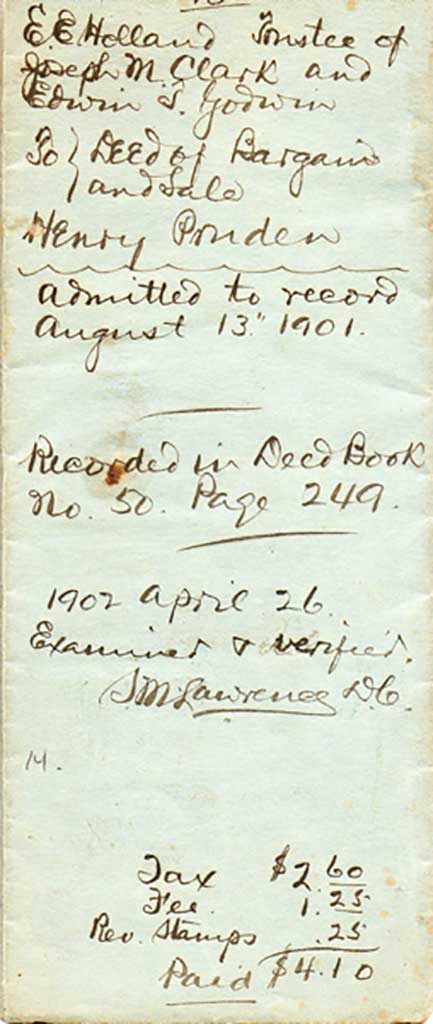 E. E. Holland Trustee of
Joseph M. Clark and
Edwin T. Godwin
To } Deed of Bargain
and Sale
Henry Pruden
admitted to record
August 13." 1901.
Recorded in Deed Book
No. 50. Page 249.
1902 April 26.
Examined & verified.
J. M. Lawrence D.C.
14.
Tax $2.60
Fee. 1.25
Rev. Stamps .25
Paid $4.10